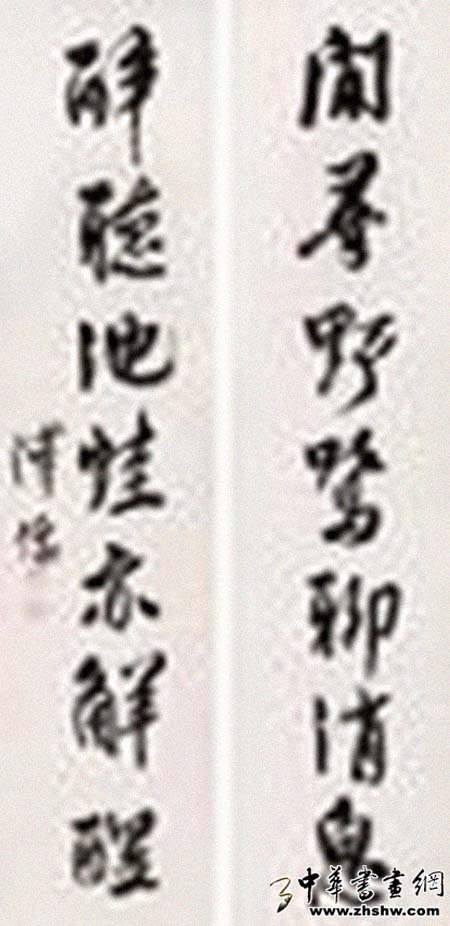 閒尋野聊消息
醉聽池蛙亦解醒
溥儒
中華書畫網
www.zhshw.com